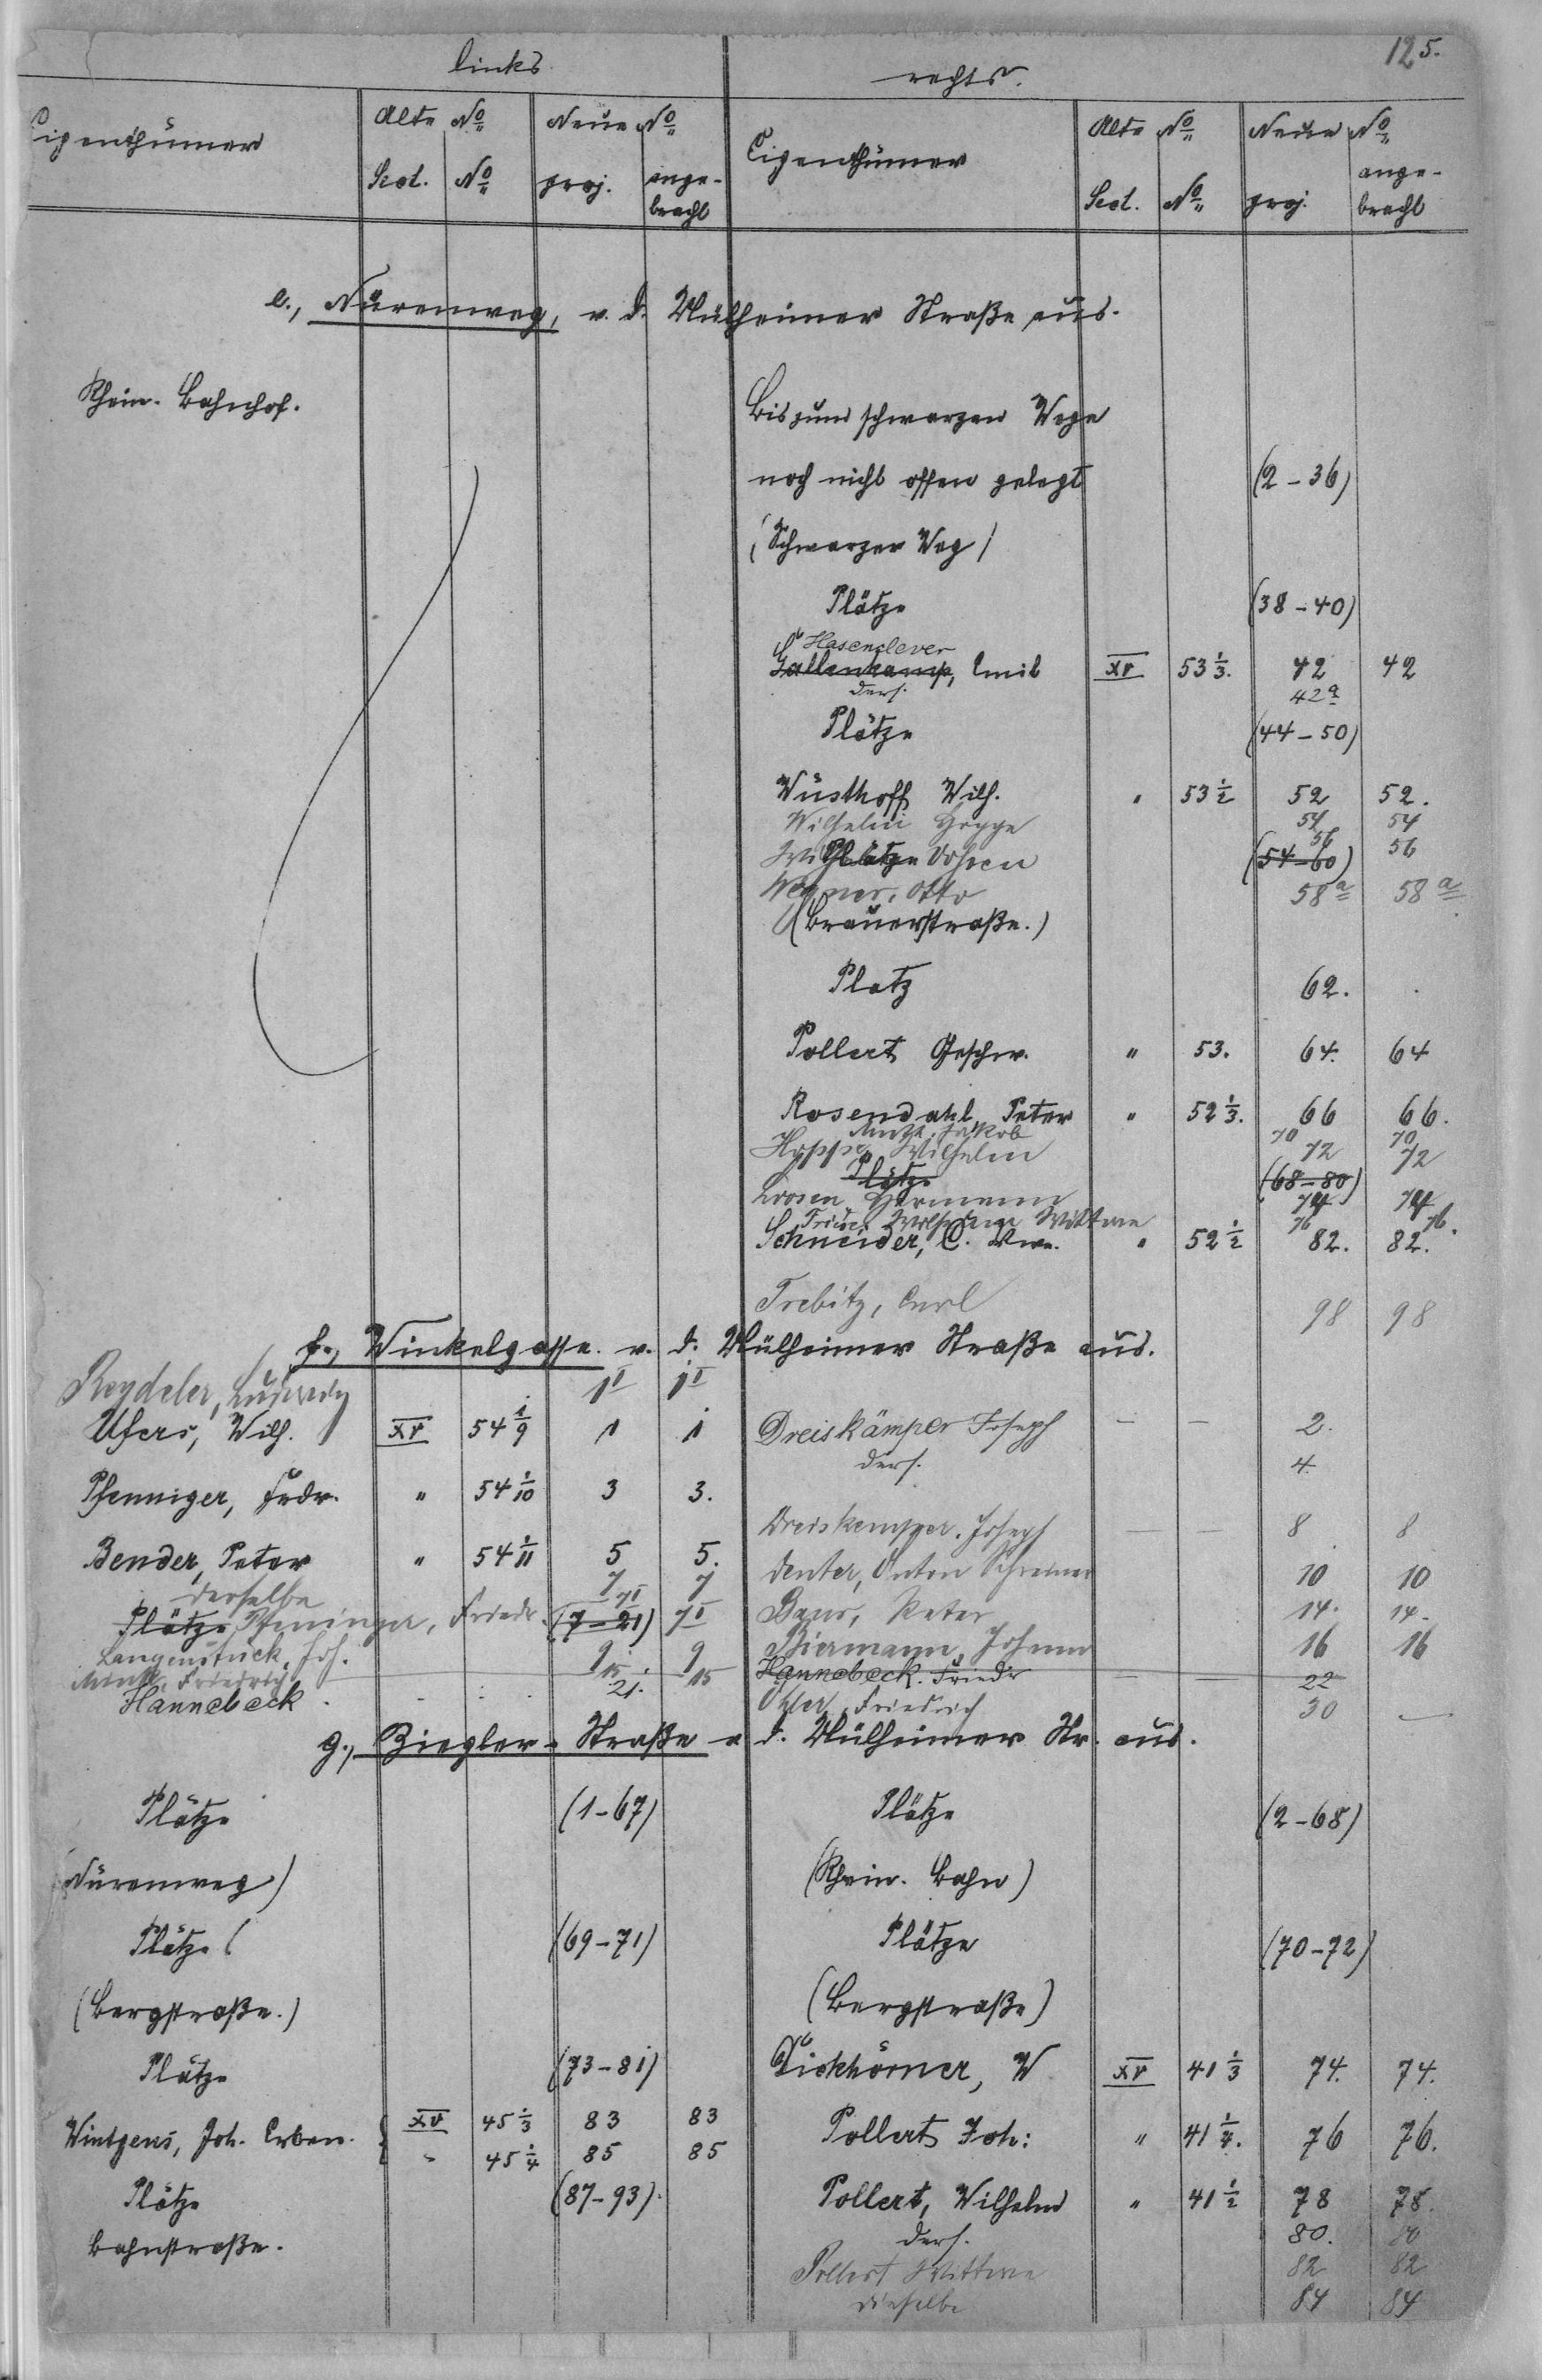 125.
links. rechts.
Eigenthümer Alte No Neue No Eigenthümer Alte No Neue No
Sect. No proj. ange-bracht Sect. No proj. ange-bracht
e., Nürenweg, v. d. Mülheimer Straße aus.
Rhein. Bahnhof. Bis zum schwarzen Wege
noch nicht offen gelegt (2-36)
(Schwarzer Weg)
Plätze (38-40)
Hasenclever
Gallenkamp, Emil XV 53 1/3. 42 42
ders. 42a
Plätze (44-50)
Wüsthoff Wilh. " 53 1/2 52 52.
Wilhelm Hoppe 54 54
56 56
Plätze Vohsen (54-60)
Wegner, Otto 58a 58a
(Brauerstraße.)
Platz 62.
Pollert Geschw. " 53. 64. 64
Rosendahl Peter " 52 1/3. 66 66.
Jakob 70 70
Hoppe Wilhelm 72 72
Plätze (68-80)
Loosen Hermann 74 74
Wittwe 76 76.
Schneider, C. Wwe. " 52 1/2 82. 82.
Trebitz, Carl 98 98
f., Winkelgasse v. d. Mülheimer Straße aus.
Reydeler, Ludwig 1I 1I
Ufers, Wilh. XV 54 1/9 1 1 Dreiskämper Joseph — — 2.
ders. 4.
Pfenniger, Frdr. " 54 1/10 3 3.
Dreiskemper. Joseph — — 8 8
Bender, Peter " 54 1/11 5 5. Denter, Anton Schreiner 10 10
derselbe 7 7
Plätze Pfeninger, Friedr. (7-21) 7I 7I Baus, Peter 14. 14.
Langenstück, Joh. 9 9 Biermann, Johann 16 16
Friedrich 15 15 Hannebeck. Friedr — — 22
Hannebeck 21. Friedrich 30 —
g., Ziegler-Straße v d. Mülheimer Str. aus.
Plätze (1-67) Plätze (2-68)
(Nürenweg) (Rhein. Bahn)
Plätze (69-71) Plätze (70-72)
(Bergstraße.) (Bergstraße)
Plätze (73-81) Dickhörner, W XV 41 1/3 74. 74.
Wintgens, Joh. Erben. { XV 45 1/3 83 83 Pollert Joh: " 41 1/4. 76 76.
" 45 1/4 85 85
Plätze (87-93). Pollert, Wilhelm " 41 1/2 78 78.
Bahnstraße. ders. 80. 80
Pollert Wittwe 82 82
dieselbe 84 84